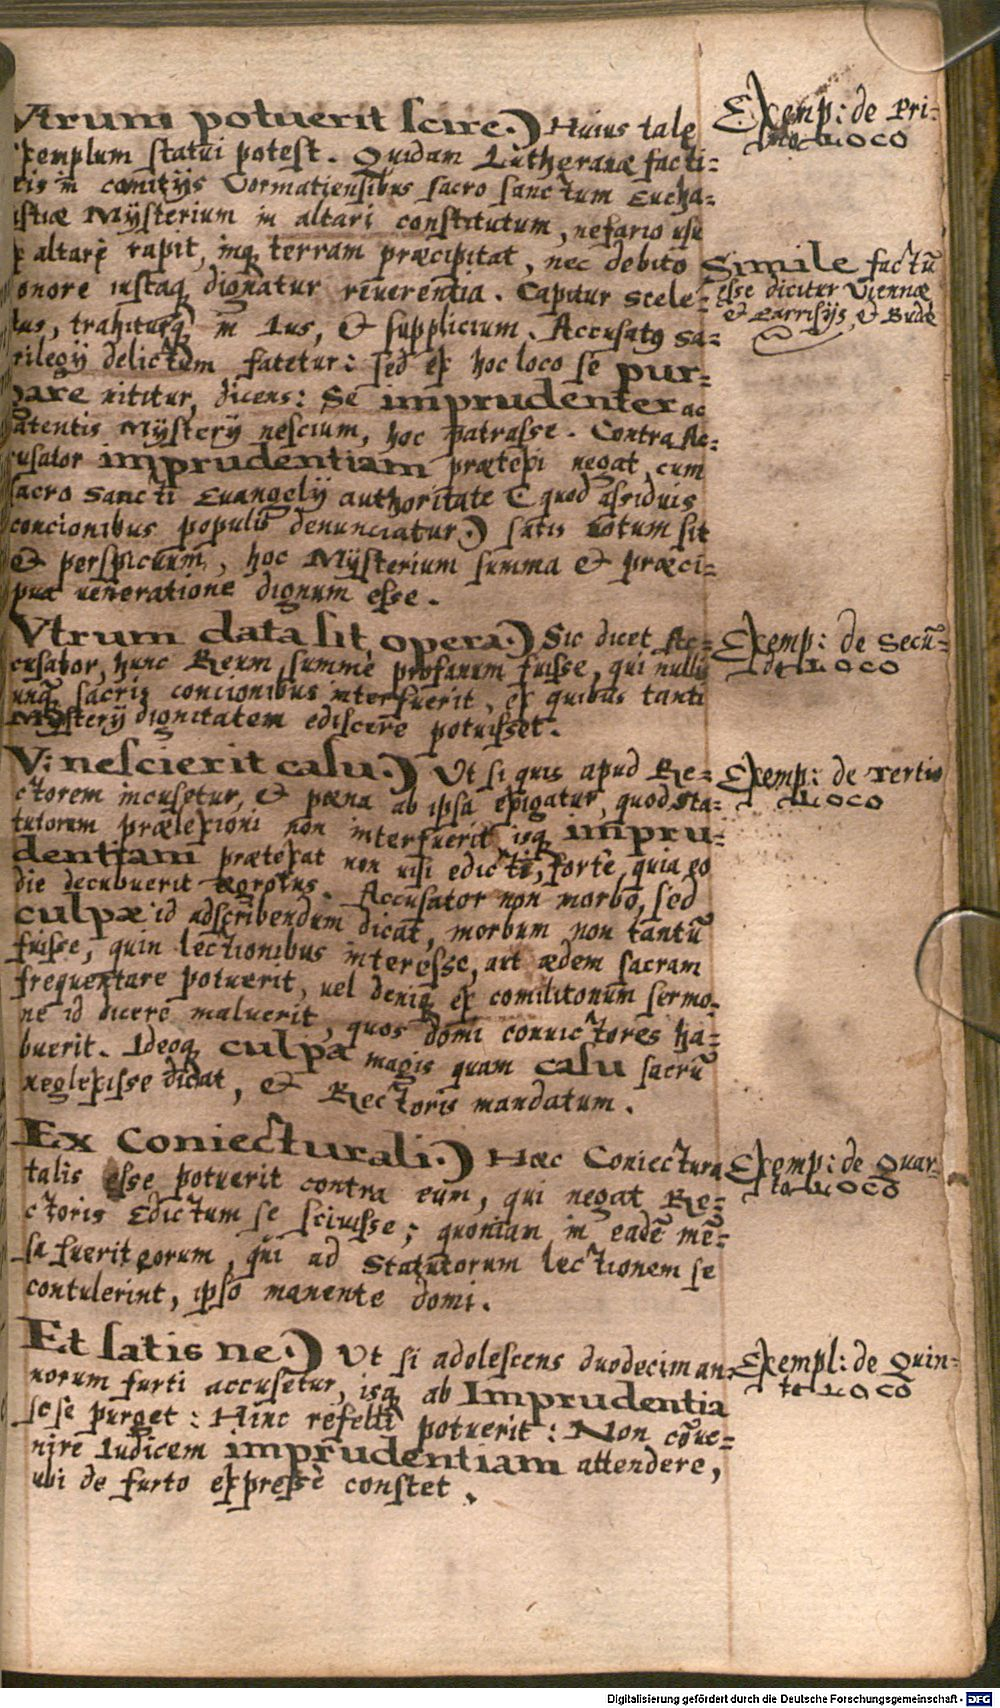 Vtrum potuerit scire.) Huius tale
exemplum statui potest. Quidam Lutheranæ facti-
in comitijs Vormatiensibus sacro sanctum Eucha-
Mÿsterium in altari constitutum, nefario usu
altare rapit, inq terram præcipitat, nec debito
onore iustaq dignatur reuerentia. Capitur scele-
tus, trahiturq in Ius, & supplicium. Accusatus sa-
rilegij delictum fatetur: sed ex hoc loco se pur-
gare nititur, dicens: Se imprudenter ac
atentis Mÿsterij nescium, hoc patrasse. Contra Ac-
cusator imprudentiam prætexi negat, cum
sacro sancti Euangelij authoritate (quod assiduis
concionibus populis denunciatur.) satis notum sit
& perspicuum, hoc Mÿsterium summa & præci-
pua ueneratione dignum esse.
Vtrum data sit opera.) Sic dicet Ac-
cusator, hunc Reum summe profanum fuisse, qui nullis
unq̃ sacris concionibus interfuerit, ex quibus tanti
Mÿsterij dignitatem ediscere potuisset.
Vi nescierit casu.) Ut si quis apud Re-
ctorem incusetur, & pœna ab ipsa exigatur, quod sta-
tutorum prælexioni non interfuerit, isq impru-
dentiam prætexat non uisi edicti, fortè, quia eo
die decubuerit ægrotus. Accusator non morbo, sed
culpæ id adscribendum dicat, morbum non tantũ
fuisse, quin lectionibus interesse, aut ædem sacram
frequentare potuerit, uel deniq ex comilitonum sermo-
ne id dicere maluerit, quos domi conuictores ha-
buerit. Ideoq culpa magis quam casu sacrũ
neglexisse dicat, & Rectoris mandatum.
Ex Coniecturali.) Hæc Coniectura
talis esse potuerit contra eum, qui negat Re-
ctoris Edictum se sciuisse; quoniam in eadẽ mẽ-
sa fuerit eorum, qui ad Statutorum lectionem se
contulerint, ipso manente domi.
Et satis ne.) Ut si adolescens duodecim an-
norum furti accusetur, isq ab Imprudentia
sese purget: Hinc refelli potuerit: Non cõue-
nire Iudicem imprudentiam attendere,
ubi de furto expresse constet.
Exemp: de Pri-
mo Loco
Simile factũ
esse dicitur Viennæ
& Parrisijs, & Budæ
Exemp: de Secũ-
do Loco
Exemp: de Tertio
Loco
Exemp: de Quar-
to Loco
Exempl: de Quin-
to Loco
Digitalisierung gefördert durch die Deutsche Forschungsgemeinschaft - DFG